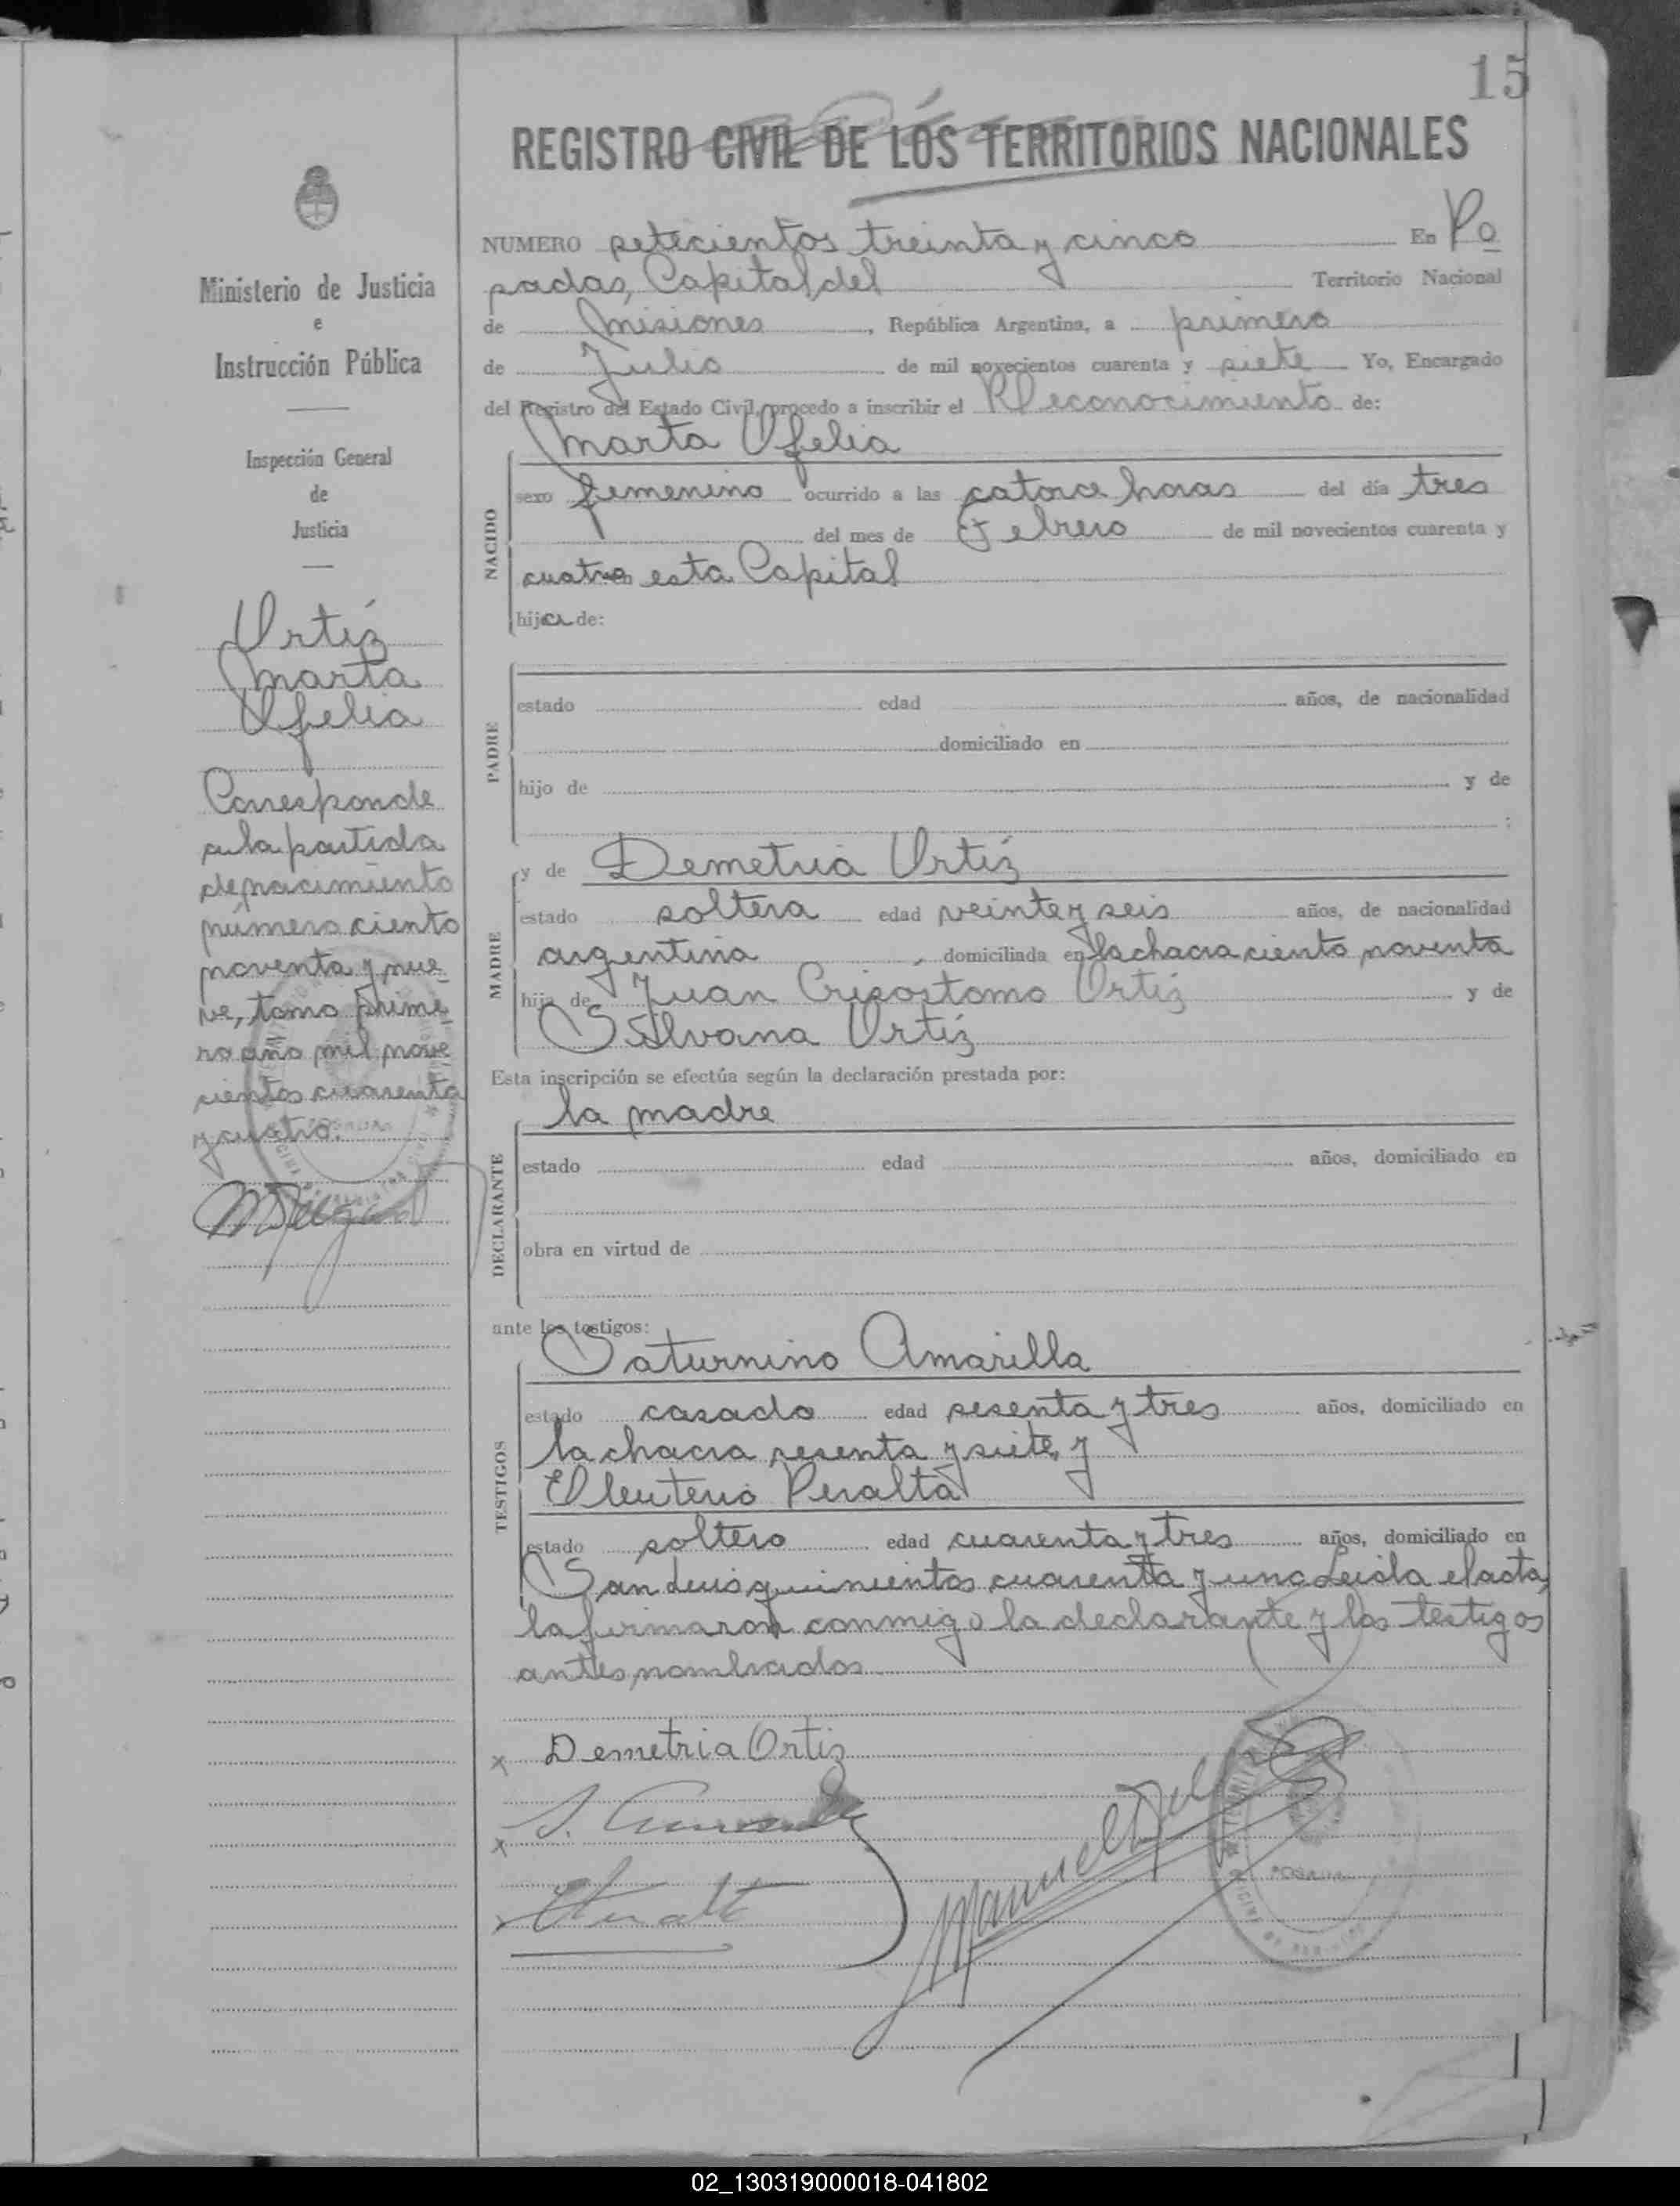 15
REGISTRO CIVIL DE LOS TERRITORIOS NACIONALES
NUMERO setecientos treinta y cinco En Po
sadas, Capital del Territorio Nacional
de Misiones, República Argentina, a primero
de Julio de mil novecientos cuarenta y siete Yo, Encargado
del Registro del Estado Civil, procedo a inscribir el Reconocimiento de:
Marta Ofelia
NACIDO
sexo femenino ocurrido a las catorce horas del día tres
del mes de Febrero de mil novecientos cuarenta y
cuatro esta Capital
hija de:
PADRE
estado edad años, de nacionalidad
domiciliado en
hijo de y de
;
MADRE
y de Demetria Ortíz
estado soltera edad veinte y seis años, de nacionalidad
argentina, domiciliada en la chacra ciento noventa
hija de Juan Crisostomo Ortíz y de
Silvana Ortíz
Esta inscripción se efectúa según la declaración prestada por:
la madre
DECLARANTE
estado edad años, domiciliado en
obra en virtud de
ante los testigos:
TESTIGOS
Saturnino Amarilla
estado casado edad sesenta y tres años, domiciliado en
la chacra sesenta y siete, y
Eleuterio Peralta
estado soltero edad cuarenta y tres años, domiciliado en
San Luis quinientos cuarenta y uno Leida el acta,
la firmaron conmigo la declarante y los testigos
antes nombrados
x Demetria Ortiz
x
x
Manuel
POSADAS
Ministerio de Justicia
e
Instrucción Pública
Inspección General
de
Justicia
Ortíz
Marta
Ofelia
Corresponde
a la partida
de nacimiento
número ciento
noventa y nue
ve, tomo prime
ro año mil nove
cientos cuarenta
y cuatro.
POSADAS
02_130319000018-041802